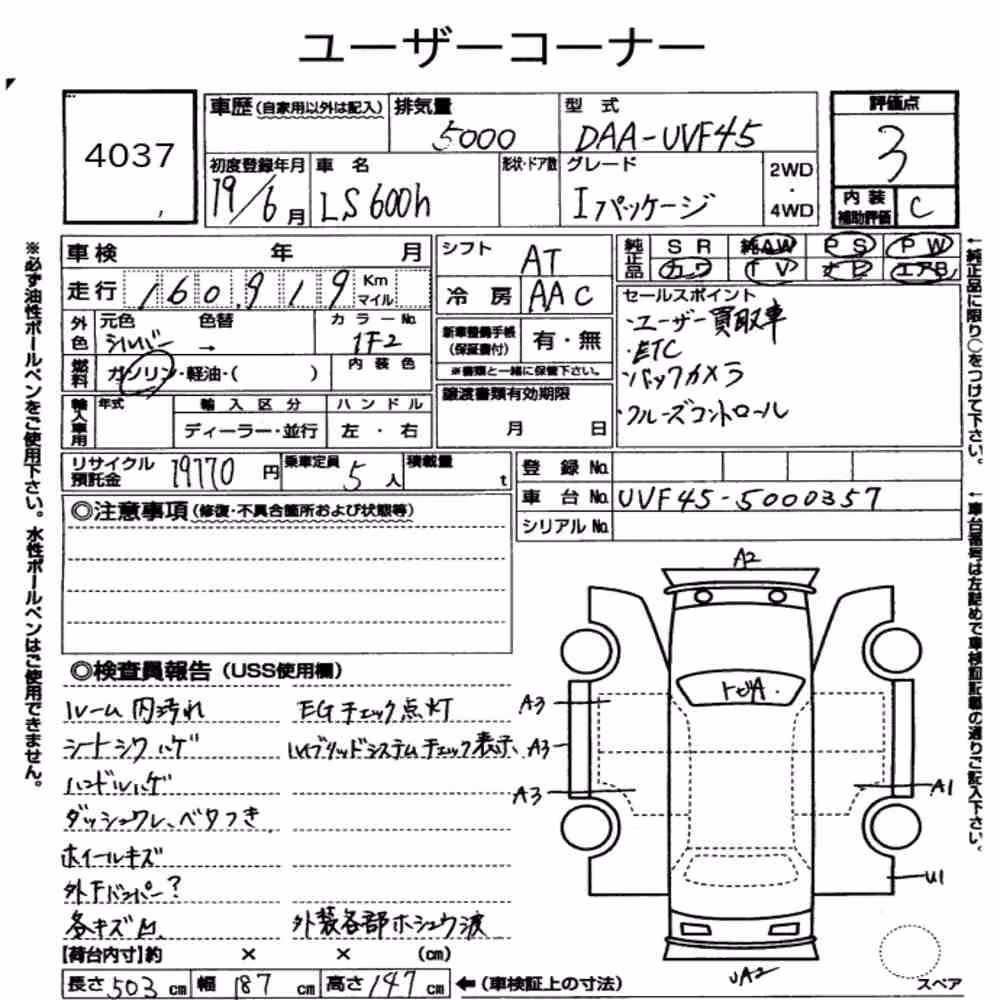 ユーザーコーナー
4037
車歴 (自家用以外は記入)
排気量
5000
型式
DAA-UVF45
評価点
3
初度登録年月
19/6月
車名
LS600h
形状・ドア数
グレード
Iパッケージ
2WD
・
4WD
内装
補助評価
C
車検 年 月
走行 160,919 Km
マイル
外色
元色 色替
シルバー →
カラーNo.
1F2
燃料
ガソリン・軽油・( )
内装色
輸入車用
年式
輸入区分
ディーラー・並行
ハンドル
左・右
シフト
AT
冷房
AAC
新車整備手帳
(保証書付)
有・無
※書類と一緒に保管下さい。
譲渡書類有効期限
月 日
純正品
SR 純AW PS PW
カワ TV ナビ エアB
セールスポイント
・ユーザー買取車
・ETC
・バックカメラ
・クルーズコントロール
リサイクル
預託金
19770円
乗車定員
5人
積載量
t
登録No.
車台No.
UVF45-5000357
シリアルNo.
◎注意事項 (修復・不具合箇所および状態等)
◎検査員報告 (USS使用欄)
ルーム内汚れ
EGチェック点灯
シートシワハゲ
ハイブリッドシステムチェック表示
ハンドルハゲ
ダッシュワレ、ベタつき
ホイールキズ
外Fバンパー?
各キズ凹
外装各部ホシュウ渡
[荷台内寸]約 × × (cm)
長さ503cm
幅187cm
高さ147cm
←(車検証上の寸法)
A2
トビA
A3
A3
A3
A1
U1
UA2
スペア
※必ず油性ボールペンをご使用下さい。水性ボールペンはご使用できません。
←純正品に限り○をつけて下さい。
←車台番号は左詰めで車検証記載の通りご記入下さい。